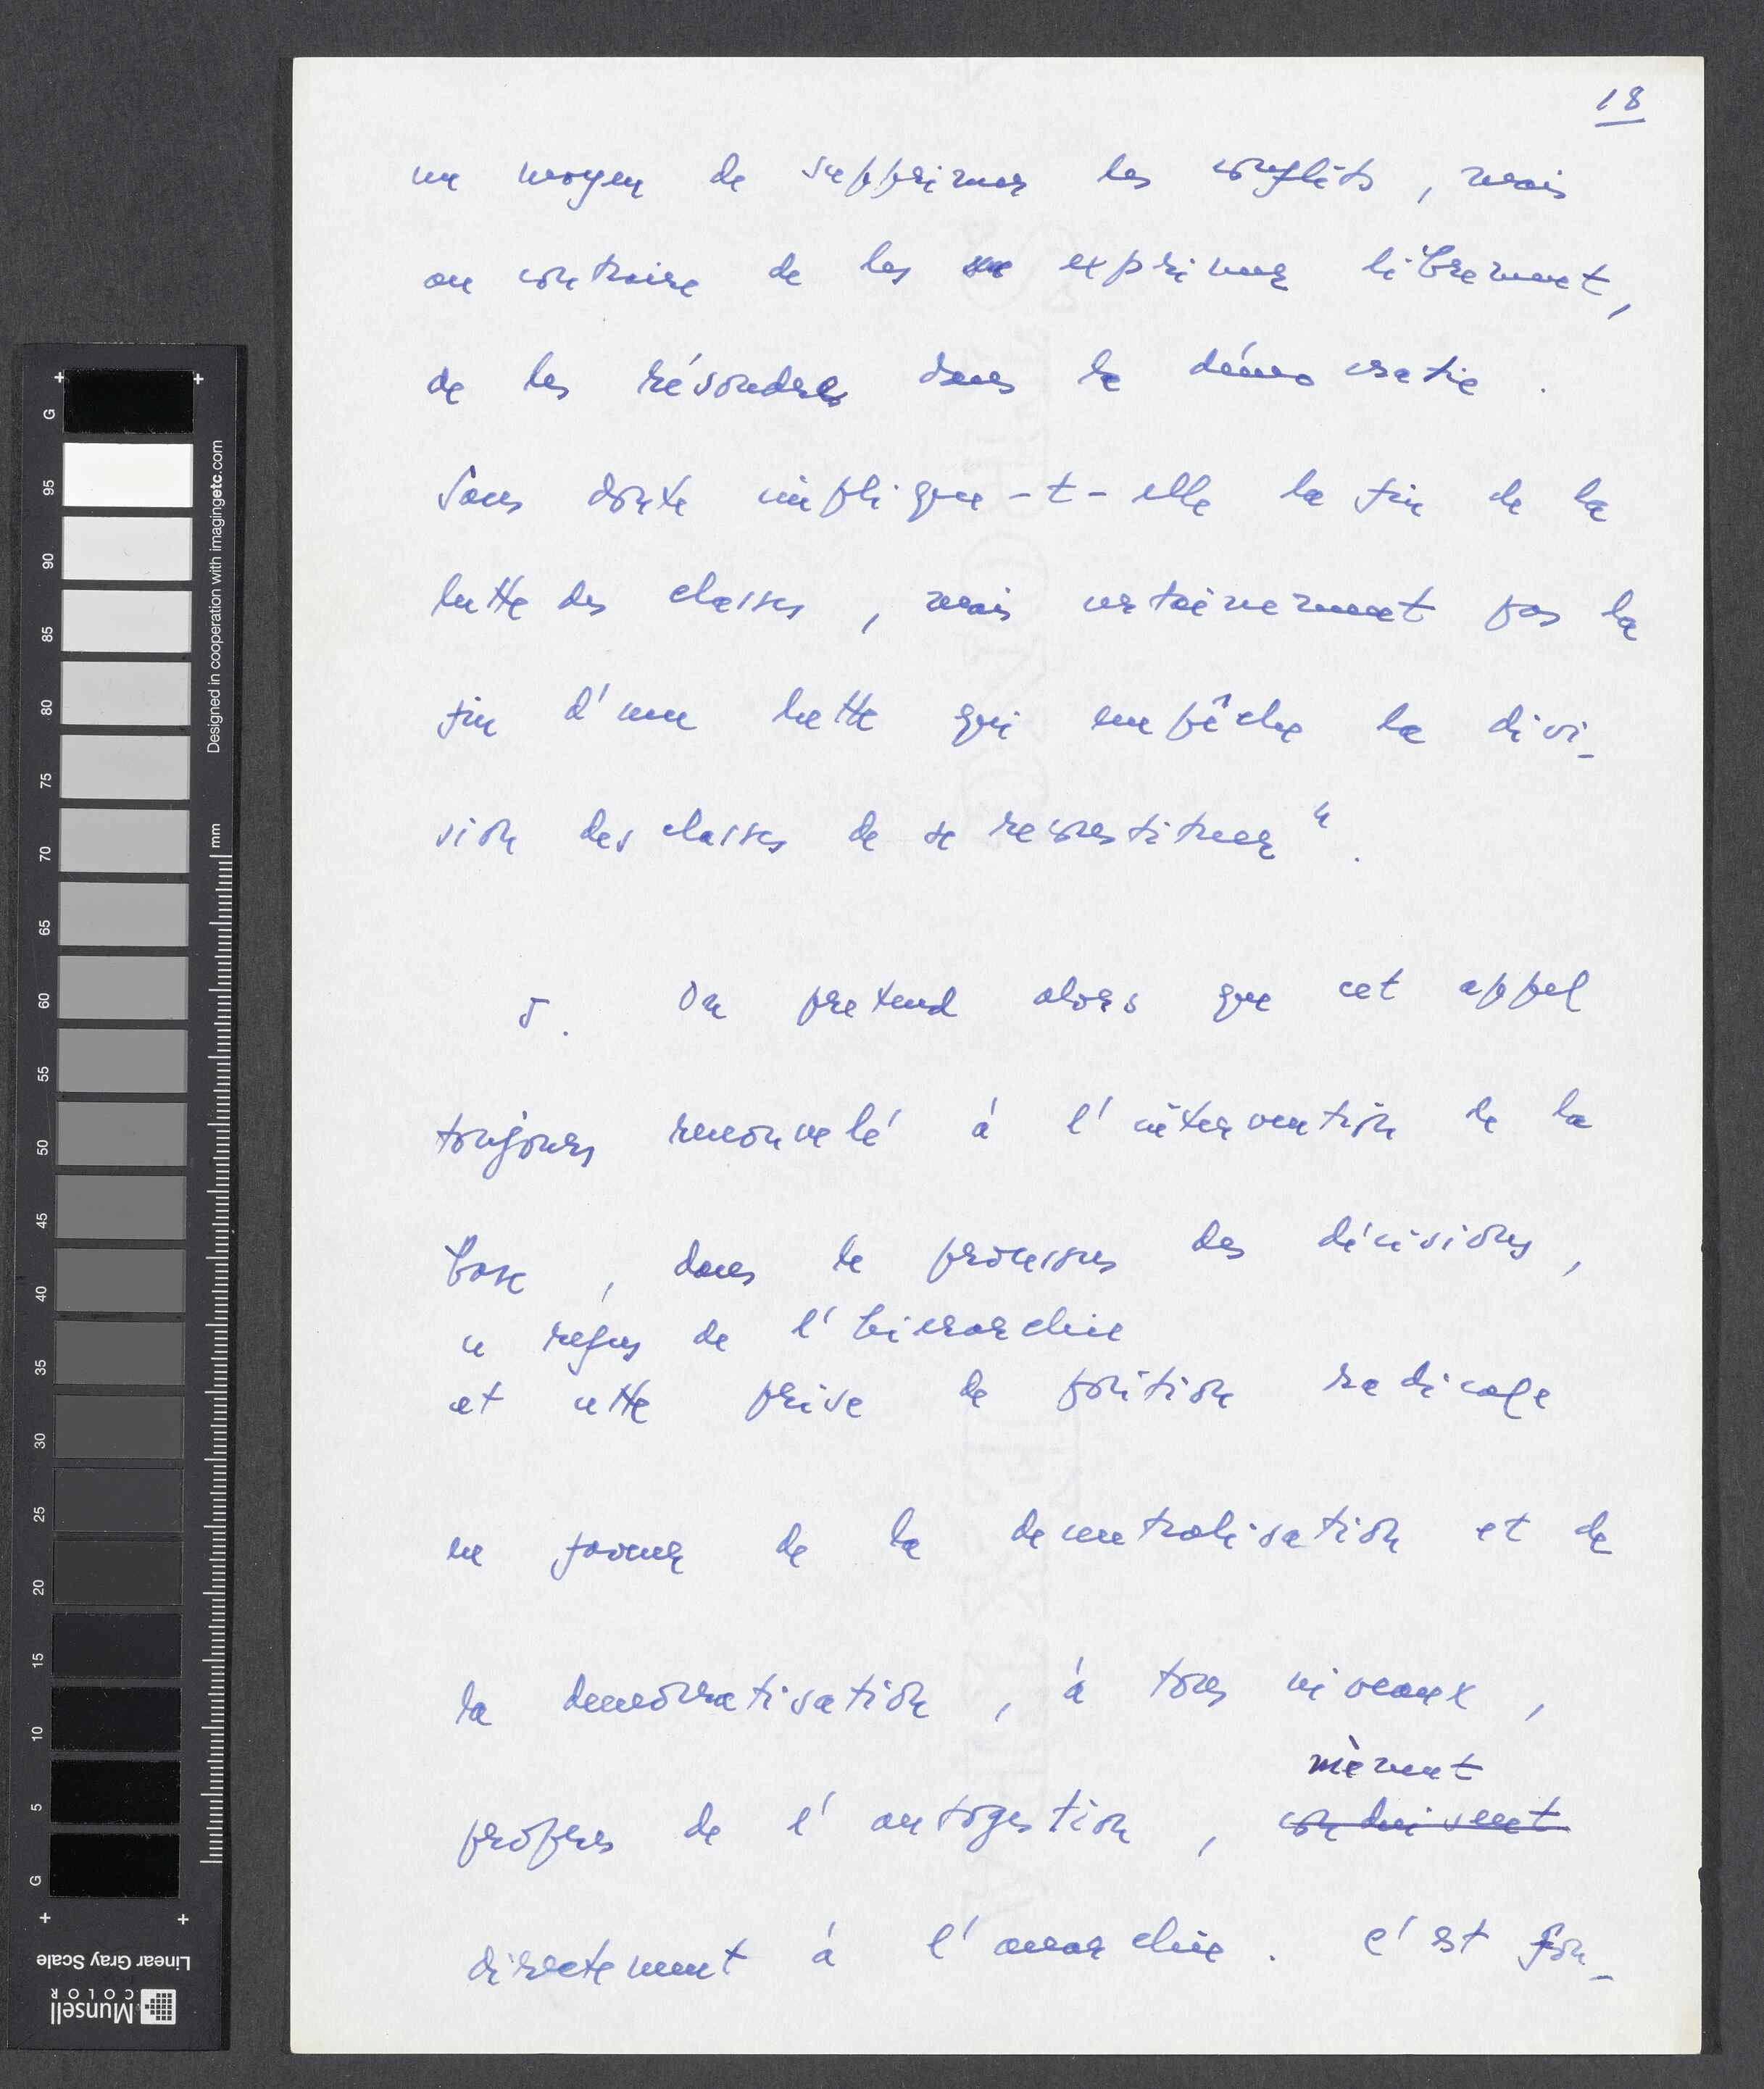 18
un moyen de supprimer les conflits, mais
au contraire de les exprimer librement,
de les résoudre dans la démocratie.
Sans doute implique-t-elle la fin de la
lutte des classes, mais certainement pas la
fin d'une lutte qui empêche la divi-
sion des classes de se reconstituer".
5. On pretend alors que cet appel
toujours renouvelé à l'intervention de la
base, dans le processus des décisions,
ce refus de l'hierarchie
et cette prise de position radicale
en faveur de la decentralisation et de
la democratisation, à tous niveaux,
mènent
propres de l'autogestion, conduisent
directement à l'anarchie. C'est fon-
G 5 10 15 20 25 30 35 40 45 50 55 60 65 70 75 80 85 90 95 G
mm
Designed in cooperation with imagingetc.com
Linear Gray Scale
Munsell
COLOR